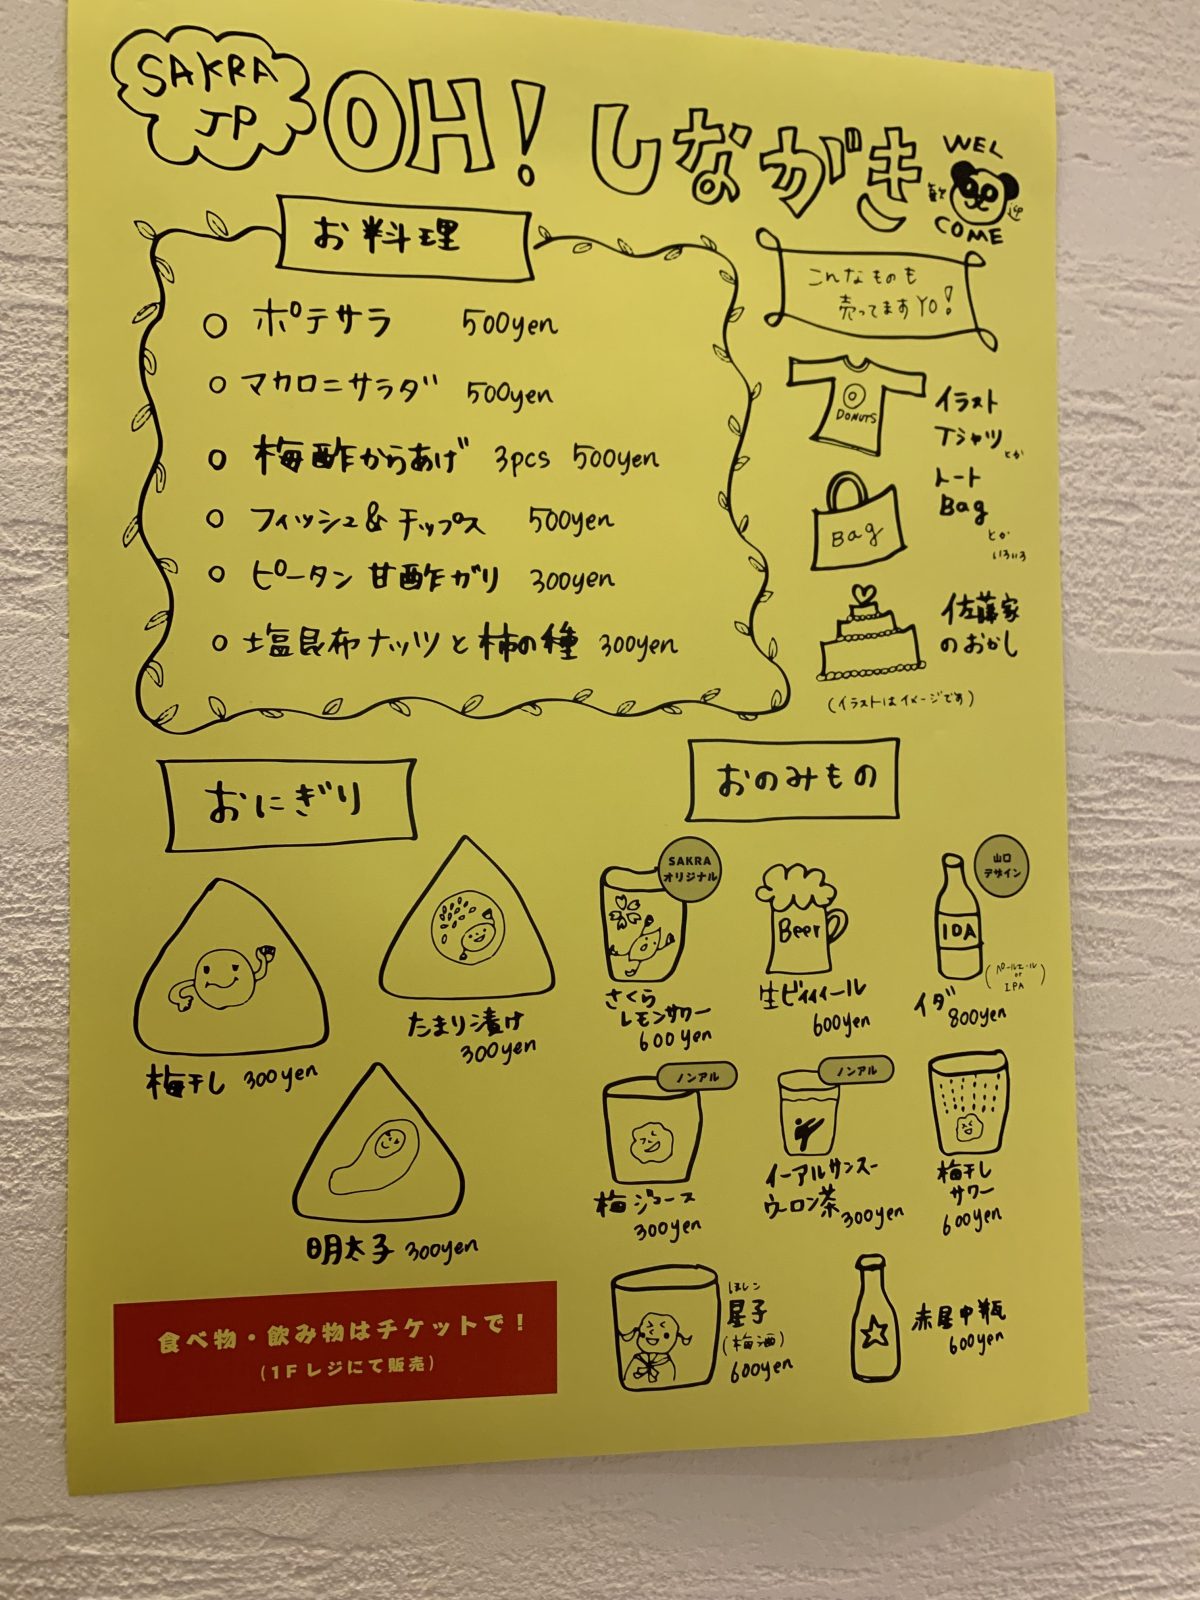 SAKRA
JP
OH! しながき
WEL
歓迎
COME
お料理
ポテサラ 500yen
マカロニサラダ 500yen
梅酢からあげ 3pcs 500yen
フィッシュ&チップス 500yen
ピータン 甘酢ガリ 300yen
塩昆布ナッツと柿の種 300yen
こんなものも
売ってますYO!
DONUTS
イラスト
Tシャツ とか
Bag
トート
Bag
とか
いろいろ
佐藤家
のおかし
(イラストはイメージです)
おにぎり
梅干し 300yen
たまり漬け
300yen
明太子 300yen
食べ物・飲み物はチケットで!
(1Fレジにて販売)
おのみもの
SAKRA
オリジナル
さくら
レモンサワー
600yen
Beer
生ビイイイール
600yen
山口
デザイン
IDA
(ペールエール
or
IPA)
イダ 800yen
ノンアル
梅ジュース
300yen
ノンアル
イーアルサンスー
ウーロン茶 300yen
梅干し
サワー
600yen
ほしこ
星子
(梅酒)
600yen
赤星中瓶
600yen